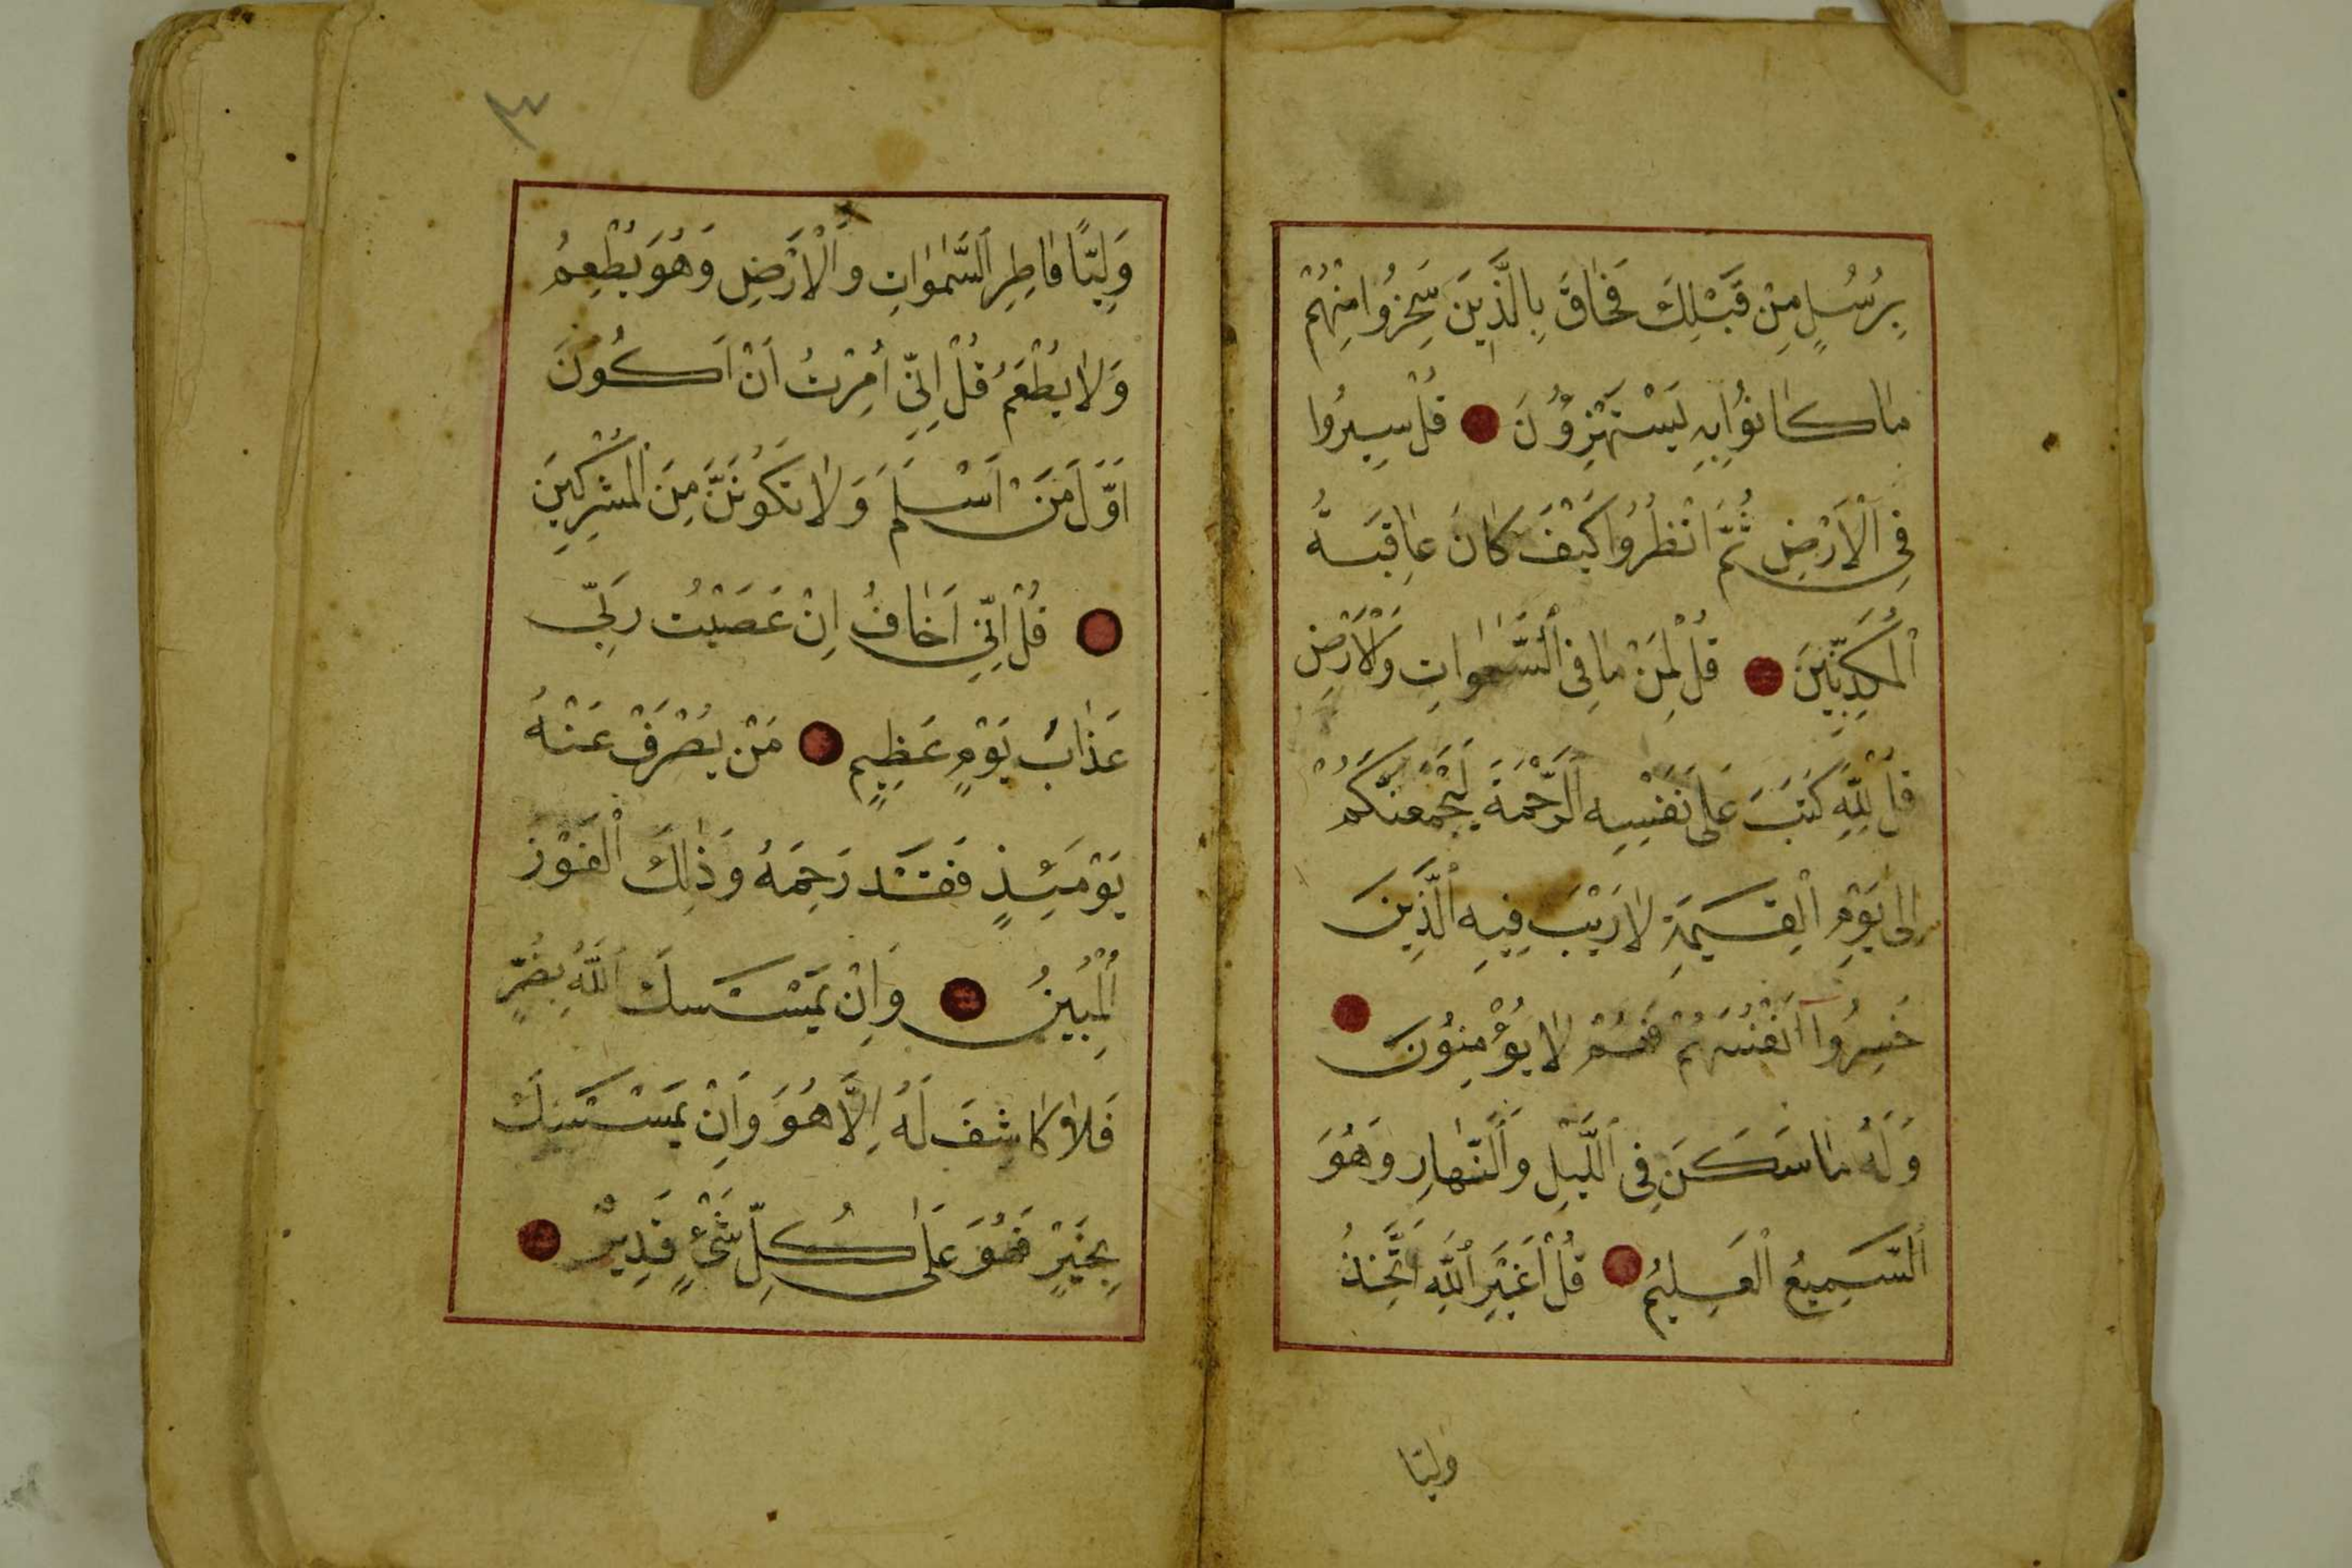 بِرُسُلٍ مِنْ قَبْلِكَ فَحَاقَ بِالَّذِينَ سَخِرُوا مِنْهُمْ
مَا كَانُوا بِهِ يَسْتَهْزِؤُنَ قُلْ سِيرُوا
فِي الْاَرْضِ ثُمَّ انْظُرُوا كَيْفَ كَانَ عَاقِبَةُ
الْمُكَذِّبِينَ قُلْ لِمَنْ مَا فِي السَّمٰوَاتِ وَالْاَرْضِ
قُلْ لِلّٰهِ كَتَبَ عَلَى نَفْسِهِ الرَّحْمَةَ لَيَجْمَعَنَّكُمْ
اِلٰى يَوْمِ الْقِيٰمَةِ لَا رَيْبَ فِيهِ الَّذِينَ
خَسِرُوا اَنْفُسَهُمْ فَهُمْ لَا يُؤْمِنُونَ
وَلَهُ مَا سَكَنَ فِي اللَّيْلِ وَالنَّهَارِ وَهُوَ
السَّمِيعُ الْعَلِيمُ قُلْ اَغَيْرَ اللّٰهِ اَتَّخِذُ
وليّا
٣
وَلِيًّا فَاطِرِ السَّمٰوَاتِ وَالْاَرْضِ وَهُوَ يُطْعِمُ
وَلَا يُطْعَمُ قُلْ اِنِّي اُمِرْتُ اَنْ اَكُونَ
اَوَّلَ مَنْ اَسْلَمَ وَلَا تَكُونَنَّ مِنَ الْمُشْرِكِينَ
قُلْ اِنِّي اَخَافُ اِنْ عَصَيْتُ رَبِّي
عَذَابَ يَوْمٍ عَظِيمٍ مَنْ يُصْرَفْ عَنْهُ
يَوْمَئِذٍ فَقَدْ رَحِمَهُ وَذٰلِكَ الْفَوْزُ
الْمُبِينُ وَاِنْ يَمْسَسْكَ اللّٰهُ بِضُرٍّ
فَلَا كَاشِفَ لَهُ اِلَّا هُوَ وَاِنْ يَمْسَسْكَ
بِخَيْرٍ فَهُوَ عَلٰى كُلِّ شَيْءٍ قَدِيرٌ